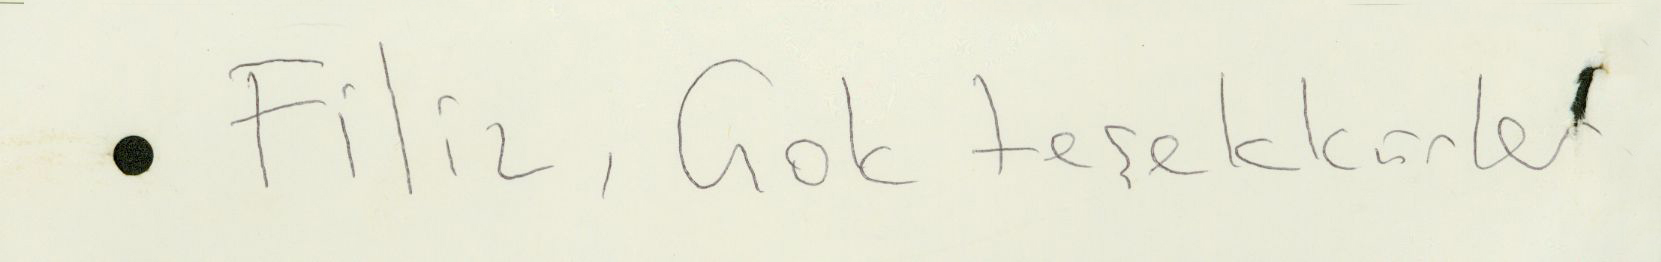 Filiz, Çok teşekkürler